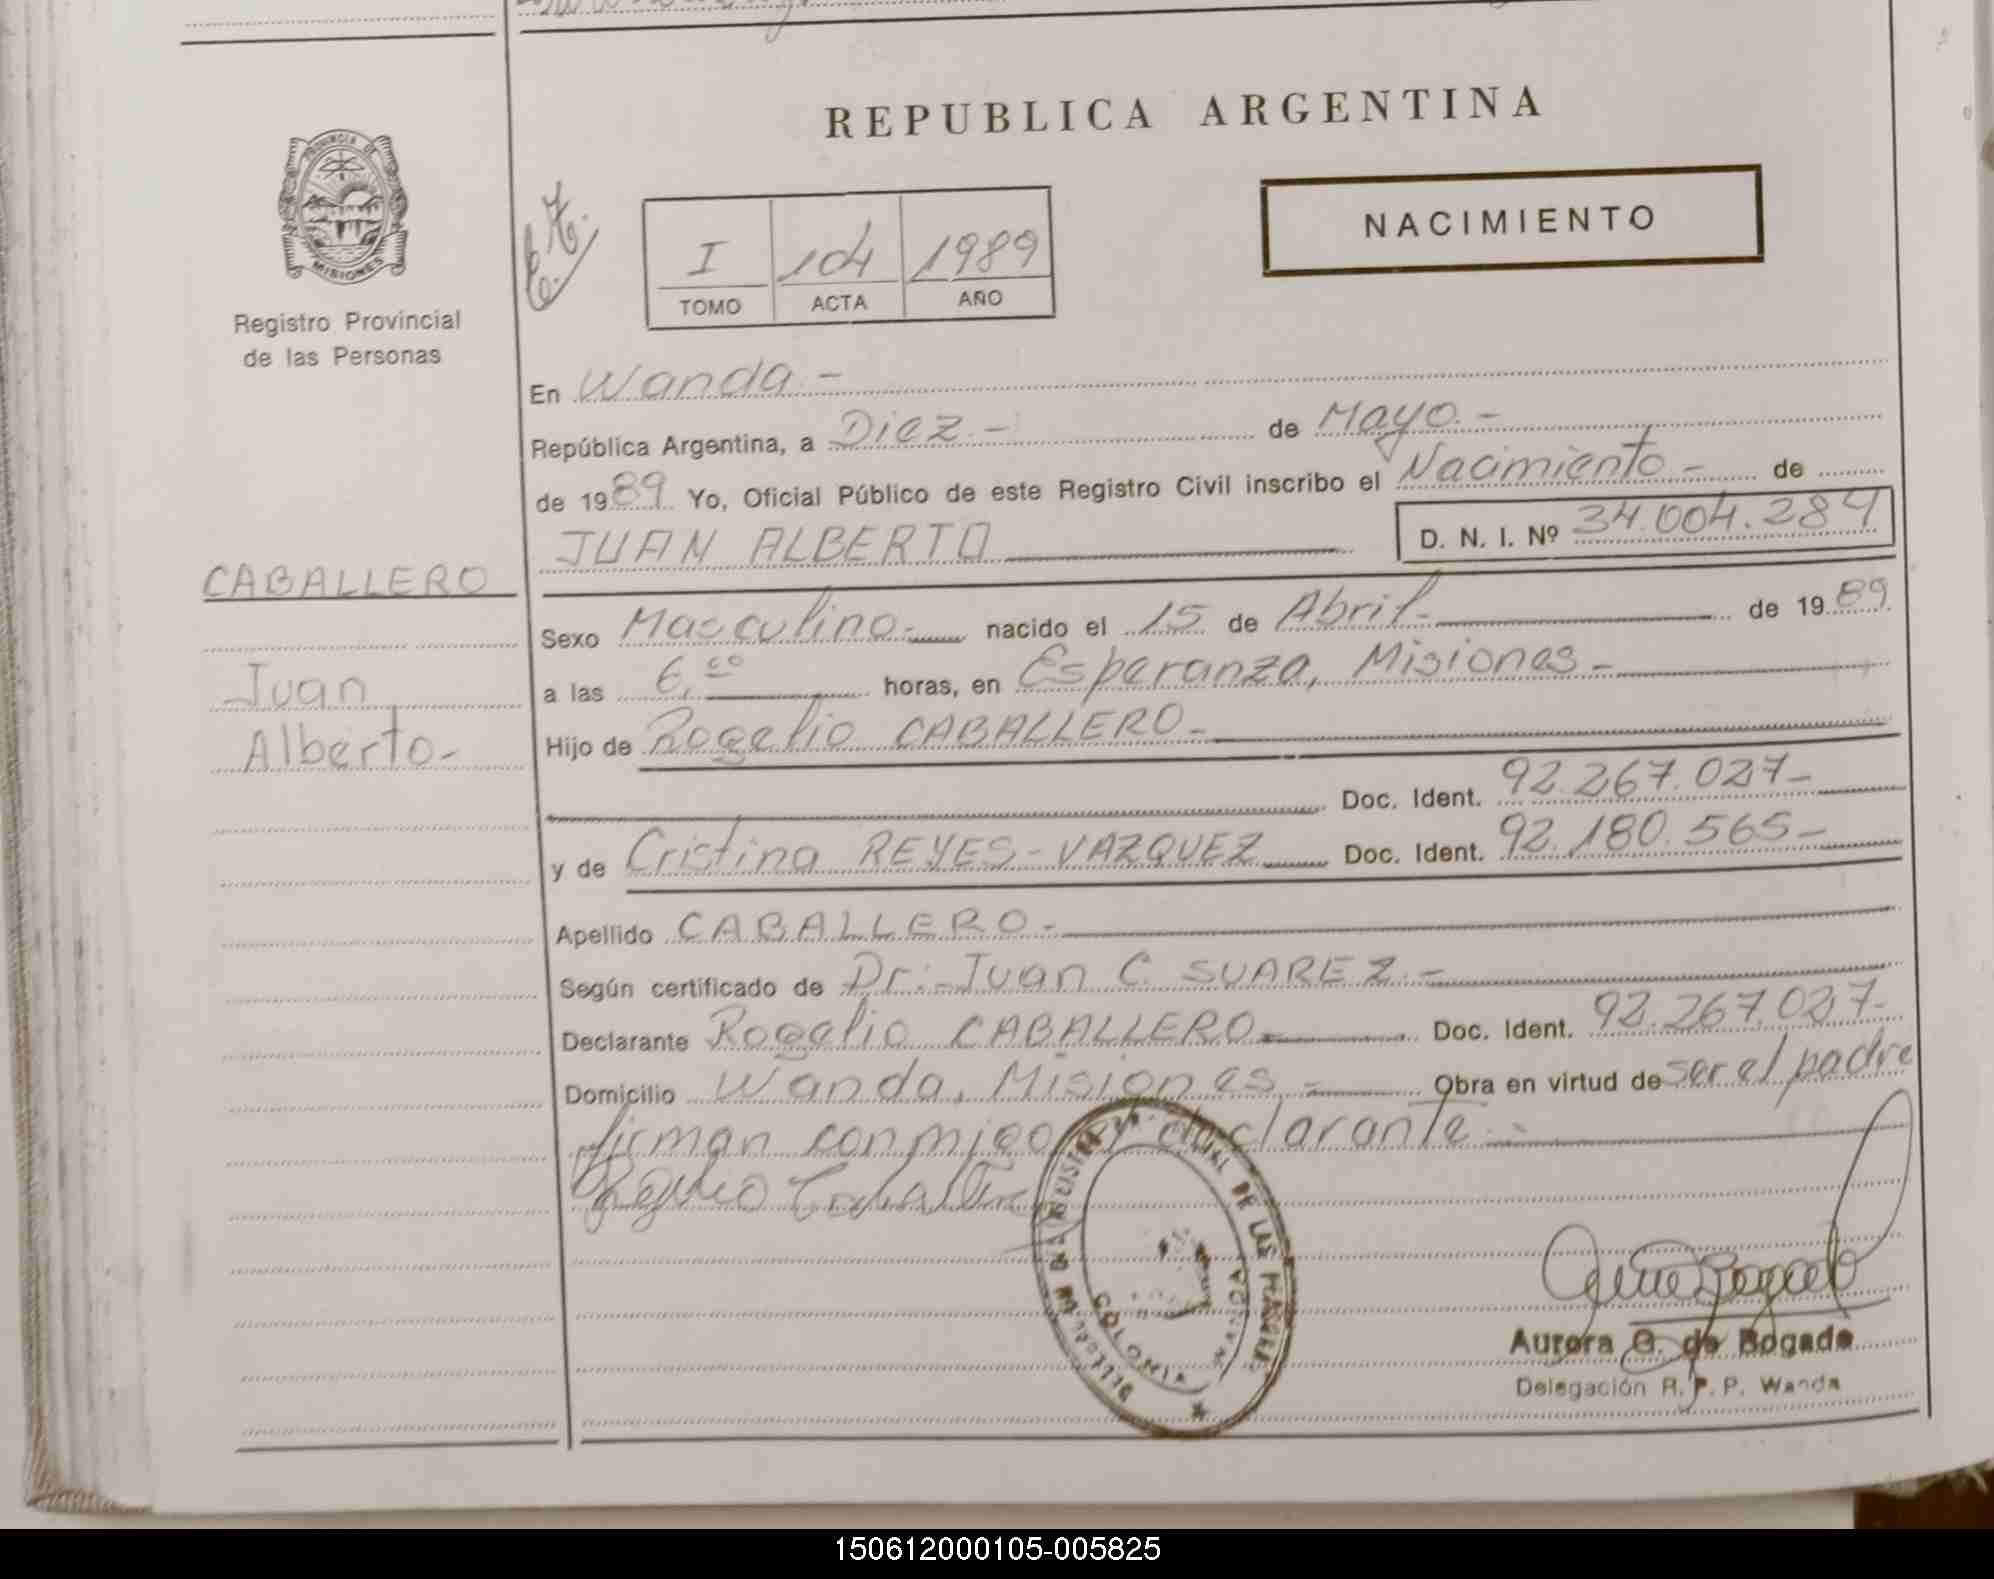 REPUBLICA ARGENTINA
PROVINCIA DE
MISIONES
Registro Provincial
de las Personas
I 104 1989
TOMO ACTA AÑO
NACIMIENTO
En Wanda.-
República Argentina, a Diez.- de Mayo.-
de 1989 Yo, Oficial Público de este Registro Civil inscribo el Nacimiento.- de
JUAN ALBERTO D. N. I. Nº 34.004.284
CABALLERO
Juan
Alberto-
Sexo Masculino.- nacido el 15 de Abril.- de 1989
a las 6,oo horas, en Esperanza, Misiones.-
Hijo de Rogelio CABALLERO.-
Doc. Ident. 92.267.027-
y de Cristina REYES-VAZQUEZ Doc. Ident. 92.180.565-
Apellido CABALLERO.-
Según certificado de Dr. Juan C. SUAREZ.-
Declarante Rogelio CABALLERO.- Doc. Ident. 92.267.027-
Domicilio Wanda, Misiones.- Obra en virtud de ser el padre
firman conmigo el declarante.-
Rogelio Caballero
DE LAS
COLONIA WANDA
Aurora G. de Bogado
Delegación R. P. P. Wanda
150612000105-005825